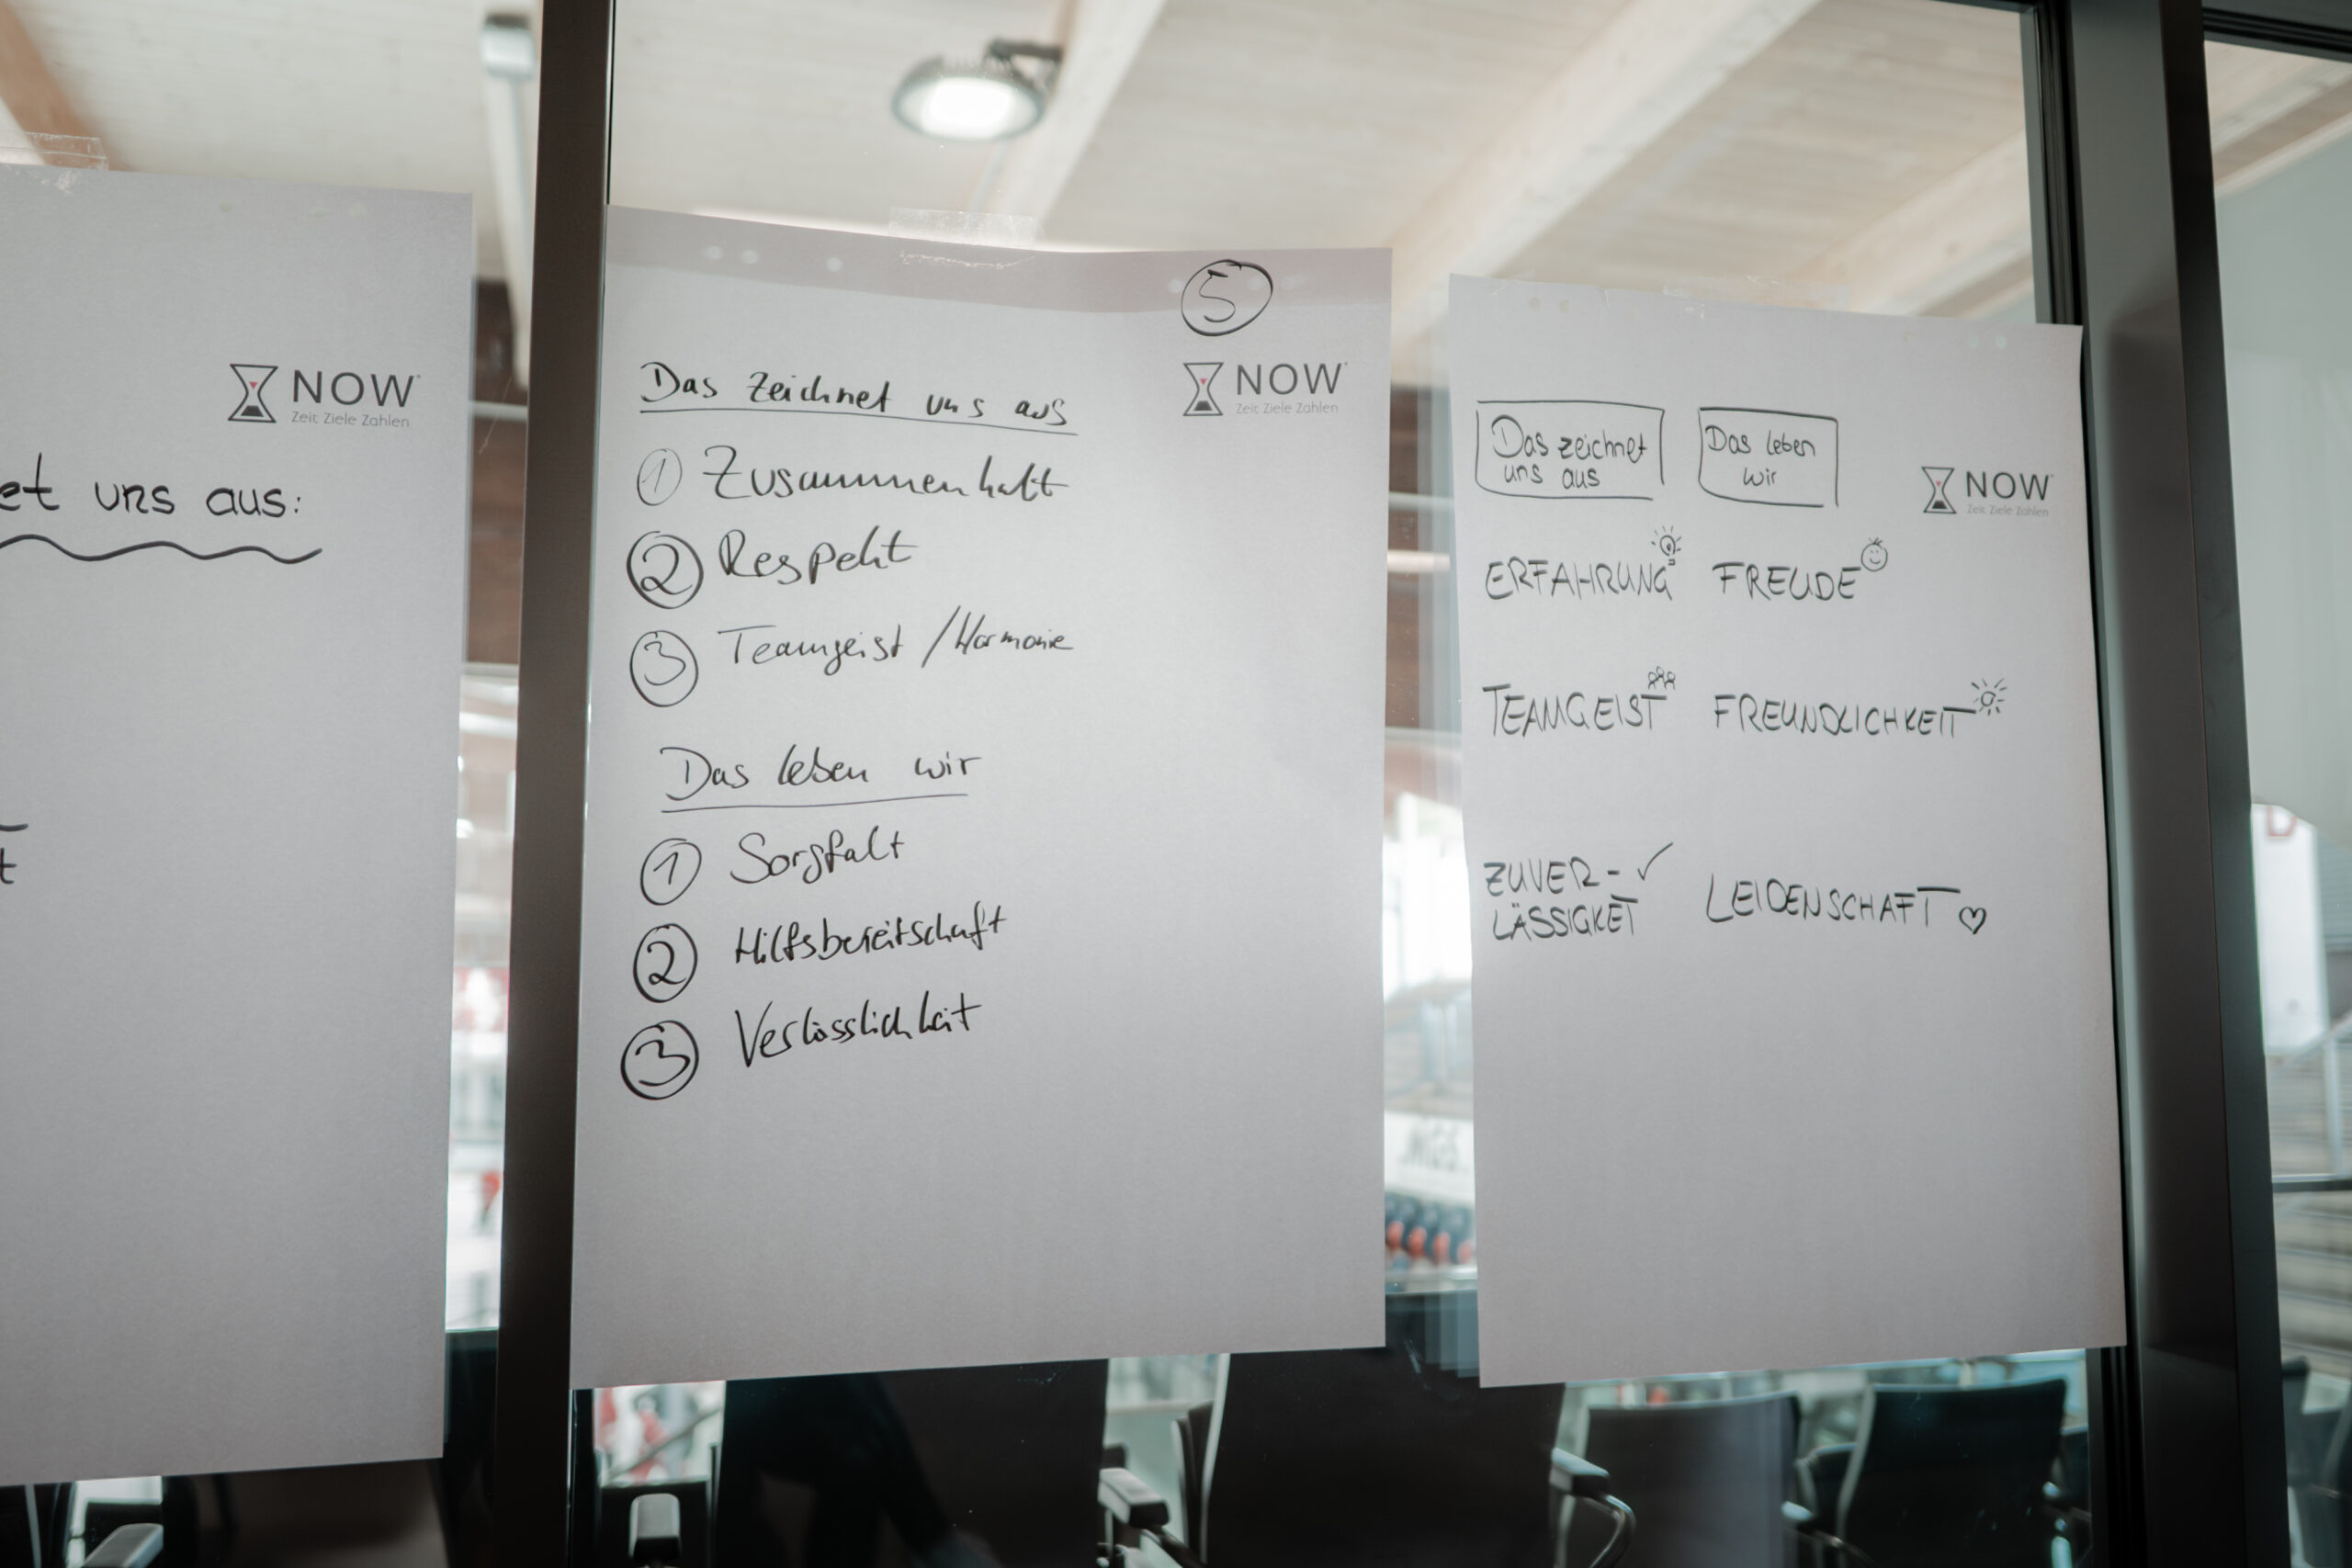 NOW
Zeit Ziele Zahlen
et uns aus:
t
5
NOW
Zeit Ziele Zahlen
Das zeichnet uns aus
1 Zusammenhalt
2 Respekt
3 Teamgeist / Harmonie
Das leben wir
1 Sorgfalt
2 Hilfsbereitschaft
3 Verlässlichkeit
Das zeichnet
uns aus
Das leben
wir
NOW
Zeit Ziele Zahlen
ERFAHRUNG FREUDE
TEAMGEIST FREUNDLICHKEIT
ZUVER-
LÄSSIGKET
LEIDENSCHAFT
D